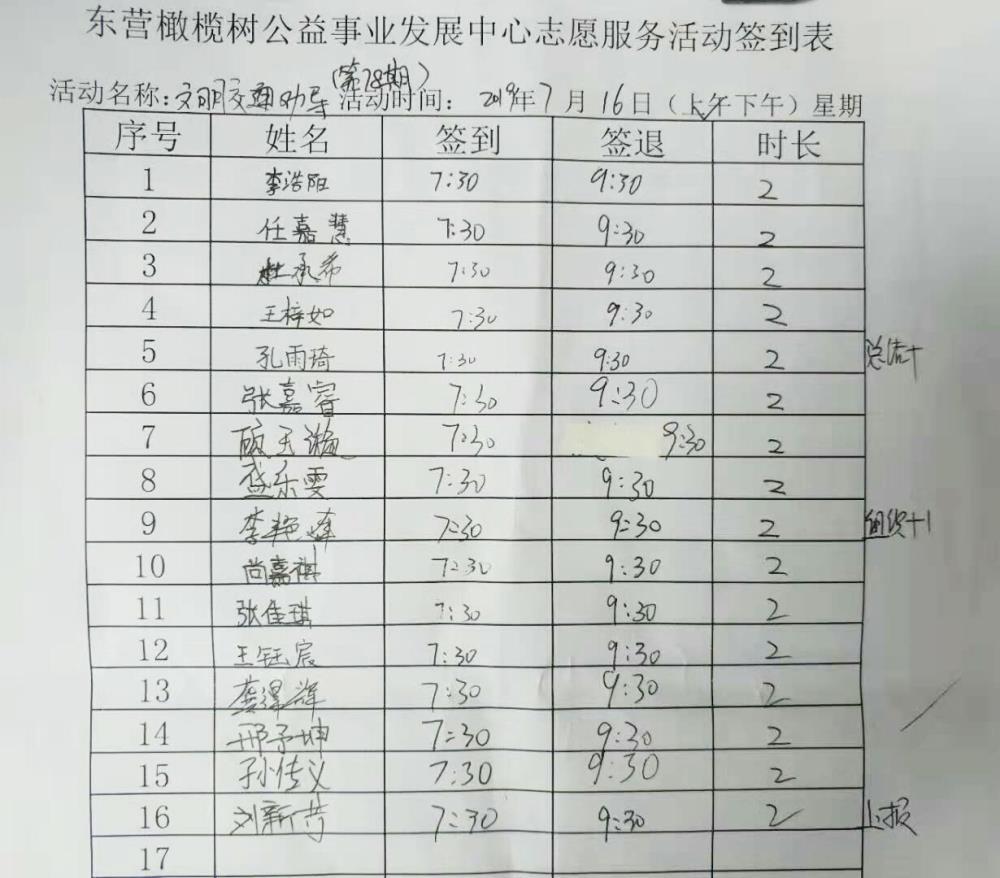 东营橄榄树公益事业发展中心志愿服务活动签到表
(第78期)
活动名称:文明交通劝导 活动时间: 2019年7月16日(上午下午)星期
序号 姓名 签到 签退 时长
1 李浩阳 7:30 9:30 2
2 任嘉慧 7:30 9:30 2
3 杜承希 7:30 9:30 2
4 王梓如 7:30 9:30 2
5 孔雨琦 7:30 9:30 2 总结+
6 张嘉睿 7:30 9:30 2
7 顾玉瀚 7:30 9:30 2
8 盛乐雯 7:30 9:30 2
9 李艳峰 7:30 9:30 2 组织+1
10 尚嘉祺 7:30 9:30 2
11 张佳琪 7:30 9:30 2
12 王钰宸 7:30 9:30 2
13 龚泽辉 7:30 9:30 2
14 邢予坤 7:30 9:30 2
15 孙传义 7:30 9:30 2
16 刘新芳 7:30 9:30 2 上报
17